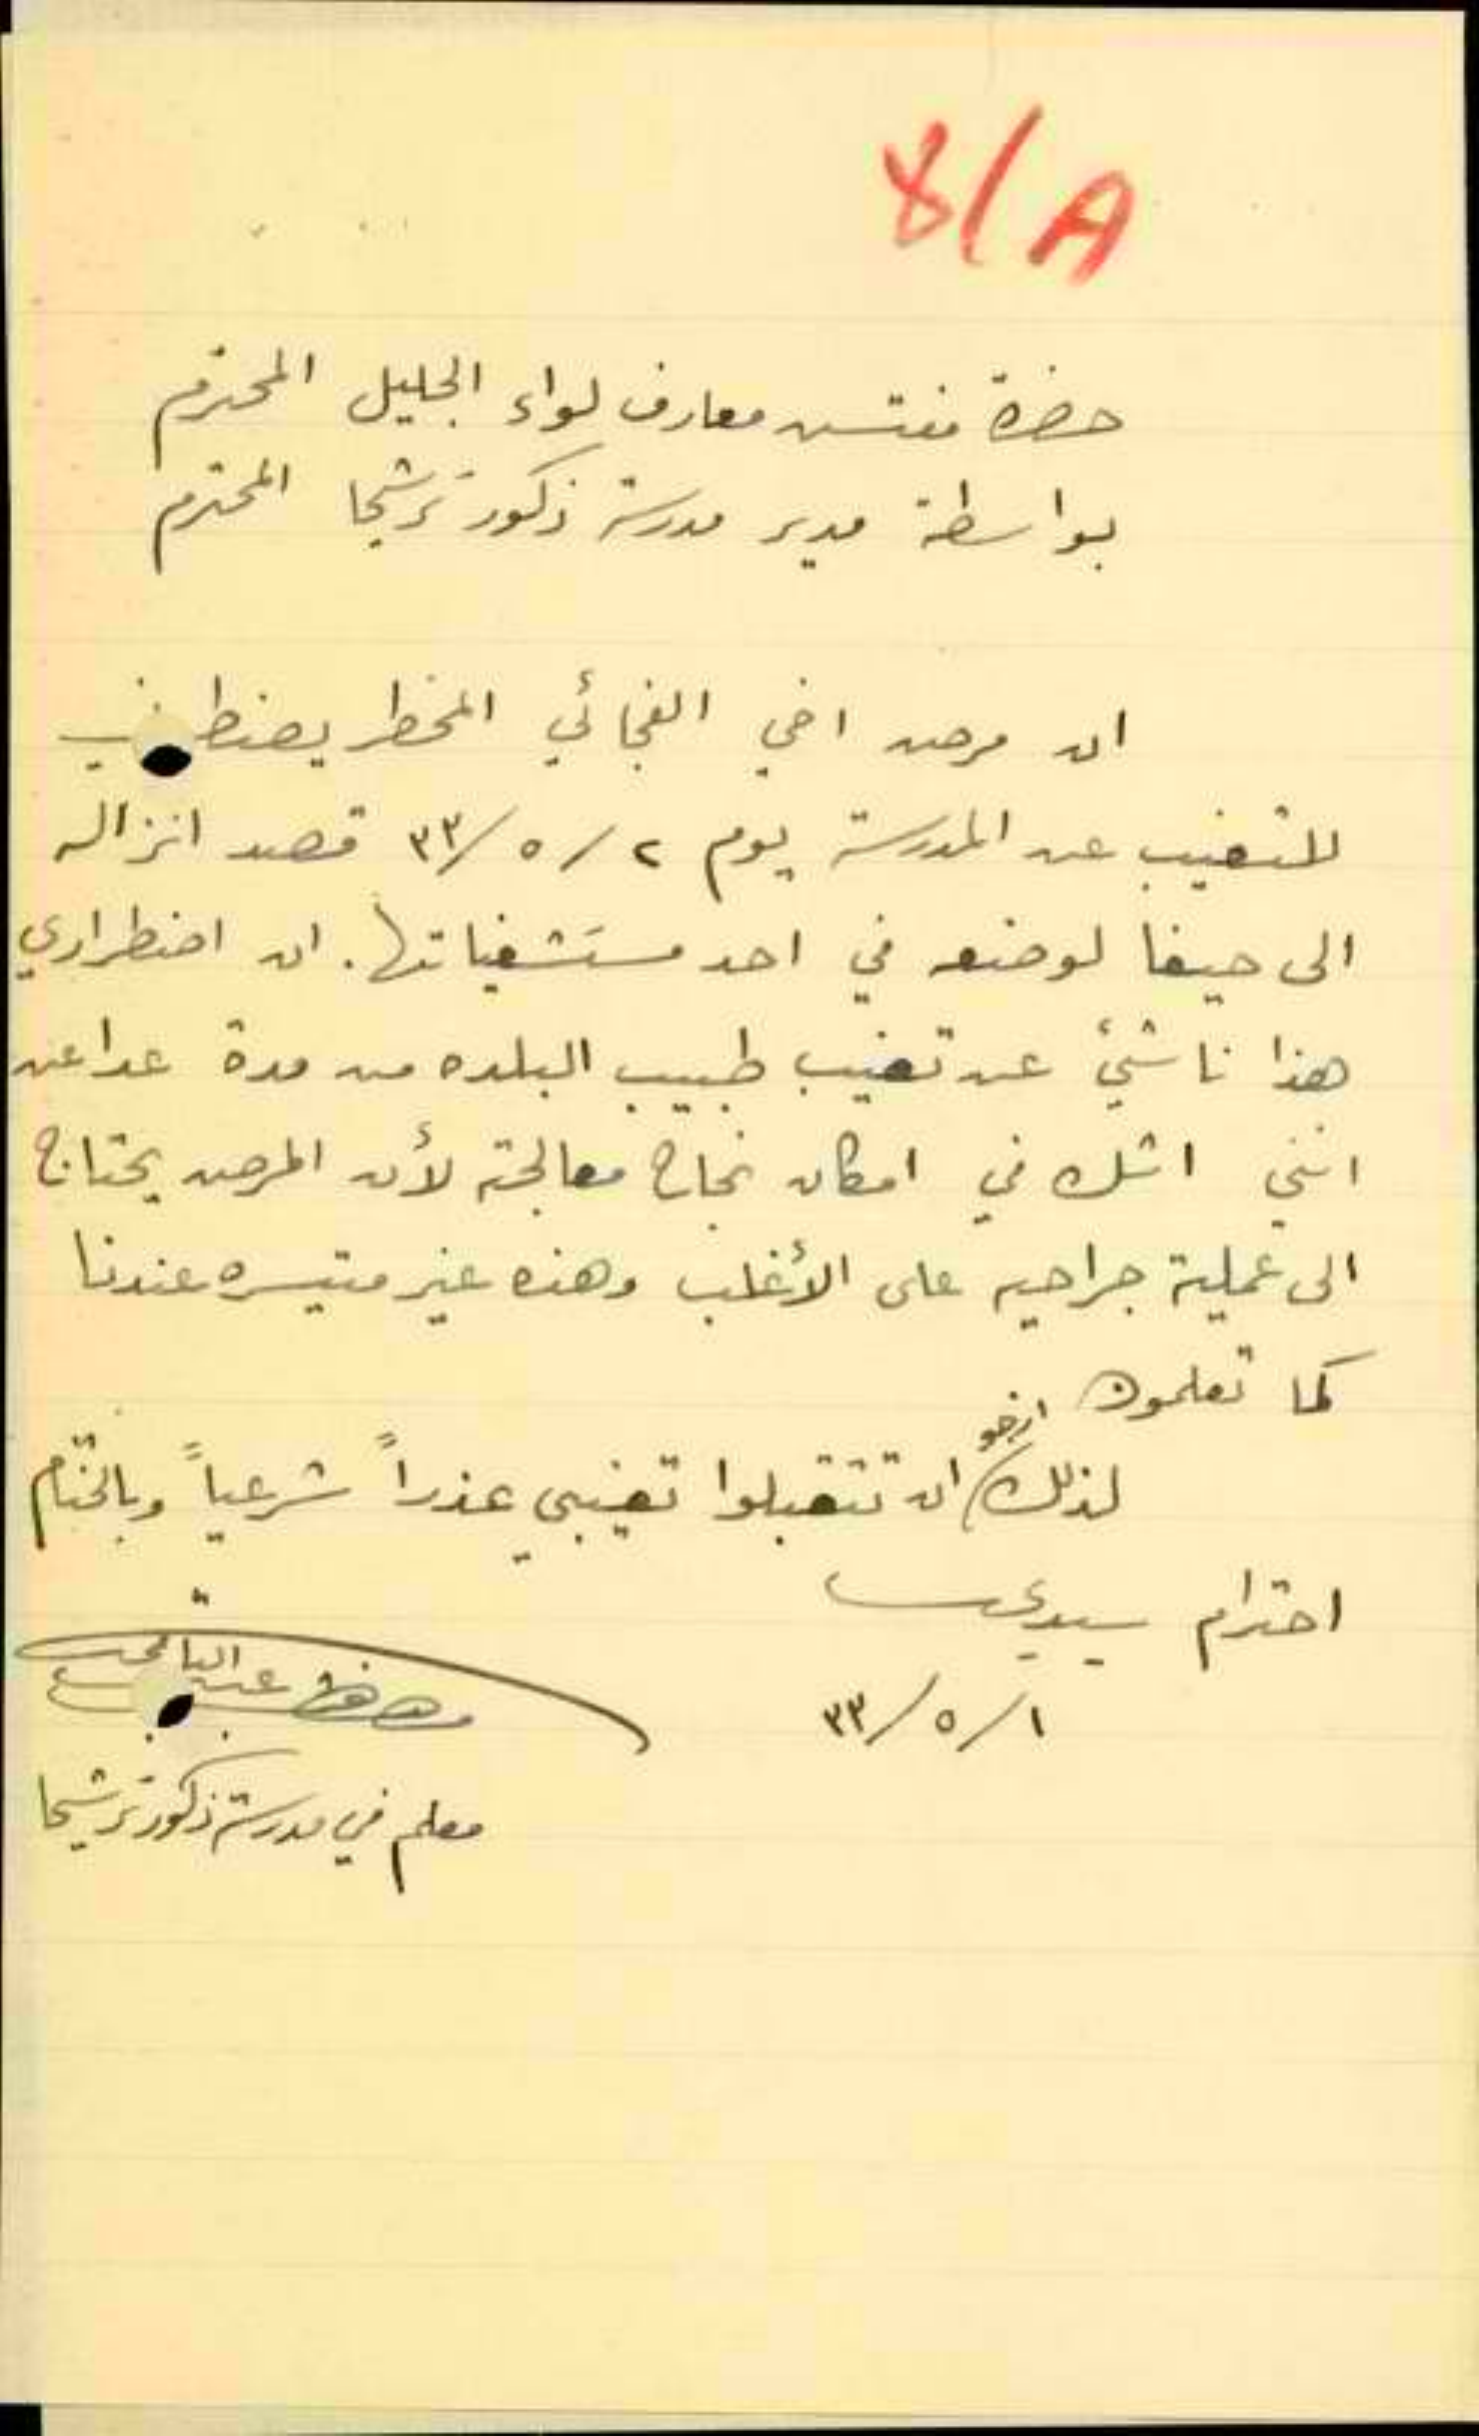 8/A
حضرة مفتش معارف لواء الجليل المحترم
بواسطة مدير مدرسة ذكور ترشيحا المحترم
ان مرض اخي الفجائي المخطر يضطرني
للتغيب عن المدرسة يوم ٢/٥/٣٣ قصد انزاله
الى حيفا لوضعه في احد مستشفياتها. ان اضطراري
هذا ناشئ عن تغيب طبيب البلده من مدة عدا عن
انني اشك في امكان نجاح معالجته لأن المرض يحتاج
الى عملية جراحيه على الأغلب وهذه غير متيسره عندنا
كما تعلمون
لذلك ارجو ان تتقبلوا تغيبي عذراً شرعياً وبالختام
احترام سيدي
١/٥/٣٣
معلم في مدرسة ذكور ترشيحا